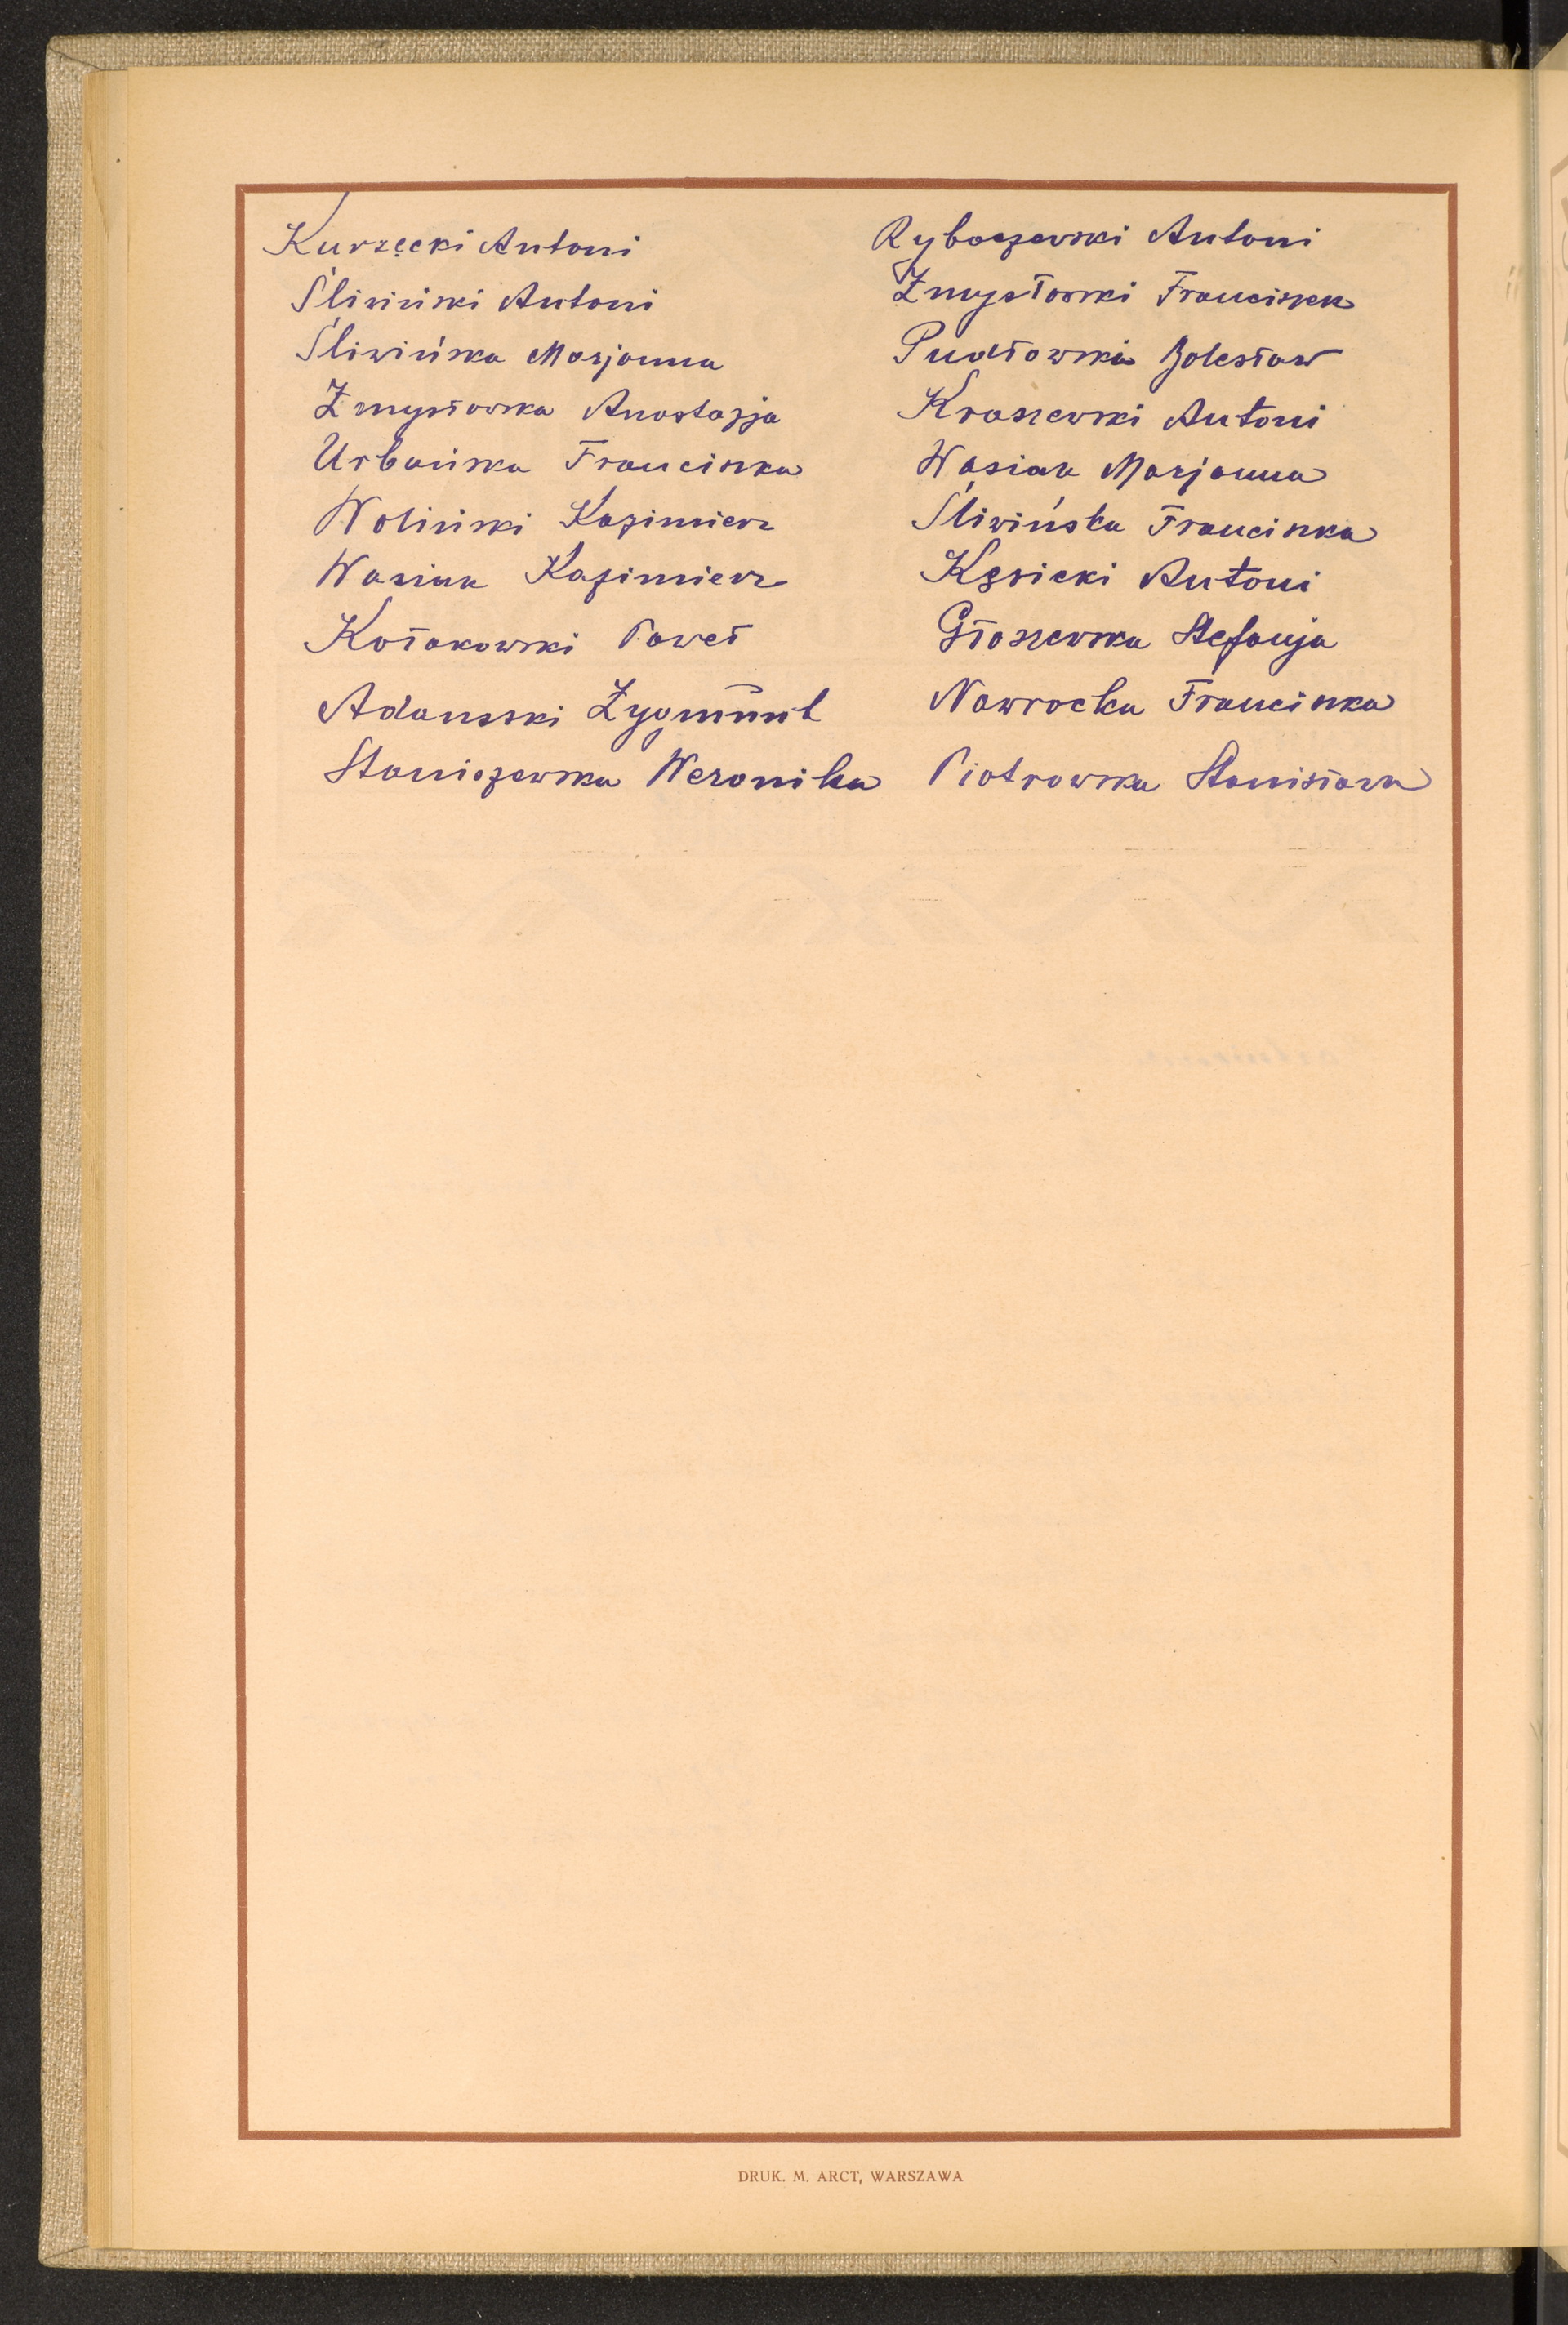 Kurzęcki Antoni
Śliwiński Antoni
Śliwińska Marjanna
Zmysłowska Anastazja
Urbańska Franciszka
Woliński Kazimierz
Wasiak Kazimierz
Kołakowski Paweł
Adamski Zygmunt
Staniszewska Weronika
Rybaczewski Antoni
Zmysłowski Franciszek
Pudłowski Bolesław
Kraszewski Antoni
Wasiak Marjanna
Śliwińska Franciszka
Kęsicki Antoni
Głaszewska Stefanja
Nawrocka Franciszka
Piotrowska Stanisława
DRUK. M. ARCT, WARSZAWA